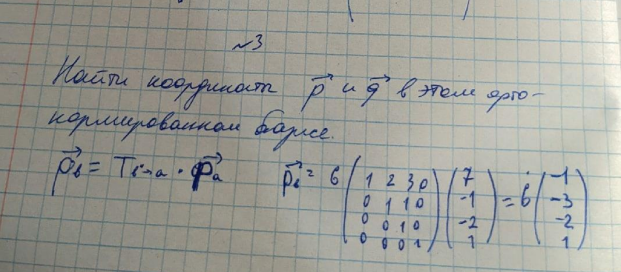 №3
Найти координаты p⃗ и q⃗ в этом орто-
нормированном базисе.
p⃗b = Tb→a · p⃗a    p⃗b = 6 (1 2 3 0; 0 1 1 0; 0 0 1 0; 0 0 0 1) (7; -1; -2; 1) = 6 (-1; -3; -2; 1)